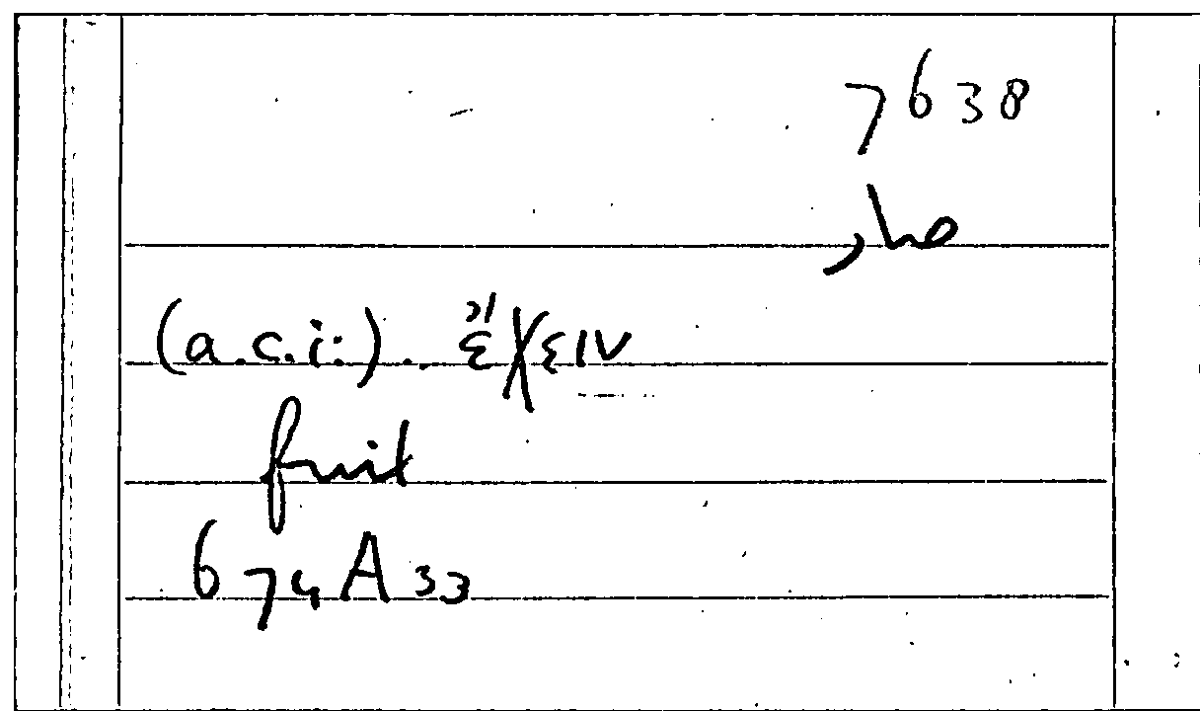 7638
صار
(a.c.i.). ἔχειν
fuit
674A33